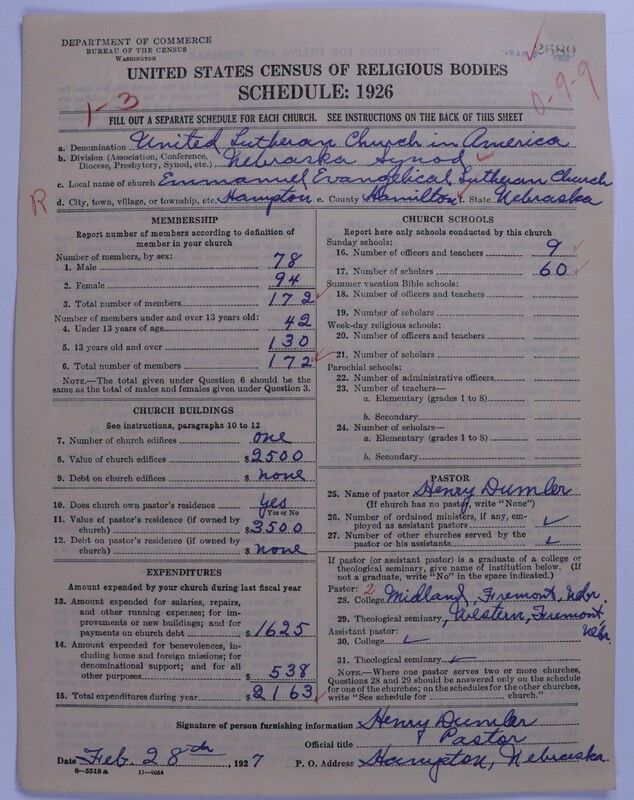 DEPARTMENT OF COMMERCE
BUREAU OF THE CENSUS
WASHINGTON
2689
UNITED STATES CENSUS OF RELIGIOUS BODIES
SCHEDULE: 1926
1-3
0-9-9
FILL OUT A SEPARATE SCHEDULE FOR EACH CHURCH. SEE INSTRUCTIONS ON THE BACK OF THIS SHEET
a. Denomination United Lutheran Church in America
b. Division (Association, Conference, Diocese, Presbytery, Synod, etc.) Nebraska Synod
c. Local name of church Emmanuel Evangelical Lutheran Church
R
d. City, town, village, or township, etc. Hampton e. County Hamilton f. State Nebraska
MEMBERSHIP
Report number of members according to definition of
member in your church
Number of members, by sex:
1. Male 78
2. Female 94
3. Total number of members 172
Number of members under and over 13 years old:
4. Under 13 years of age 42
5. 13 years old and over 130
6. Total number of members 172
NOTE.—The total given under Question 6 should be
same as the total of males and females given under Question 3.
CHURCH BUILDINGS
See instructions, paragraphs 10 to 12
7. Number of church edifices one
8. Value of church edifices $2500
9. Debt on church edifices $ none
10. Does church own pastor's residence yes
Yes or No
11. Value of pastor's residence (if owned by
church) $3500
12. Debt on pastor's residence (if owned by
church) $ none
EXPENDITURES
Amount expended by your church during last fiscal year
13. Amount expended for salaries, repairs,
and other running expenses; for im-
provements or new buildings; and for
payments on church debt $1625
14. Amount expended for benevolences, in-
cluding home and foreign missions; for
denominational support; and for all
other purposes $ 538
15. Total expenditures during year $2163
CHURCH SCHOOLS
Report here only schools conducted by this church
Sunday schools:
16. Number of officers and teachers 9
17. Number of scholars 60
Summer vacation Bible schools:
18. Number of officers and teachers
19. Number of scholars
Week-day religious schools:
20. Number of officers and teachers
21. Number of scholars
Parochial schools:
22. Number of administrative officers
23. Number of teachers—
a. Elementary (grades 1 to 8)
b. Secondary
24. Number of scholars—
a. Elementary (grades 1 to 8)
b. Secondary
PASTOR
25. Name of pastor Henry Dumler
(If church has no pastor, write "None")
26. Number of ordained ministers, if any, em-
ployed as assistant pastors
27. Number of other churches served by the
pastor or his assistants
If pastor (or assistant pastor) is a graduate of a college or
theological seminary, give name of institution below. (If
not a graduate, write "No" in the space indicated.)
Pastor: 2
28. College Midland, Fremont, Nebr.
29. Theological seminary, Western, Fremont Nebr.
Assistant pastor:
30. College
31. Theological seminary
NOTE.—Where one pastor serves two or more churches,
Questions 28 and 29 should be answered only on the schedule
for one of the churches; on the schedules for the other churches,
write "See schedule for church."
Signature of person furnishing information Henry Dumler
Official title Pastor
Date Feb. 28th, 1927 P. O. Address Hampton, Nebraska.
8—5518 a 11—9054